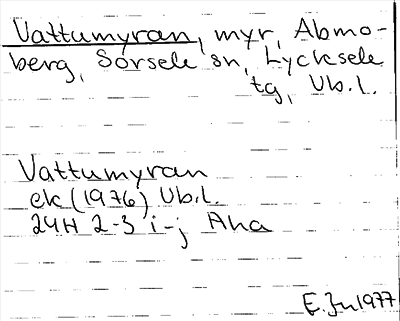 Vattumyran, myr, Abmo-
berg, Sorsele sn, Lycksele
tg, Vb.l.
Vattumyran
ek (1976) Vb.l.
24H 2-3 i-j Aha
E. Jn 1977